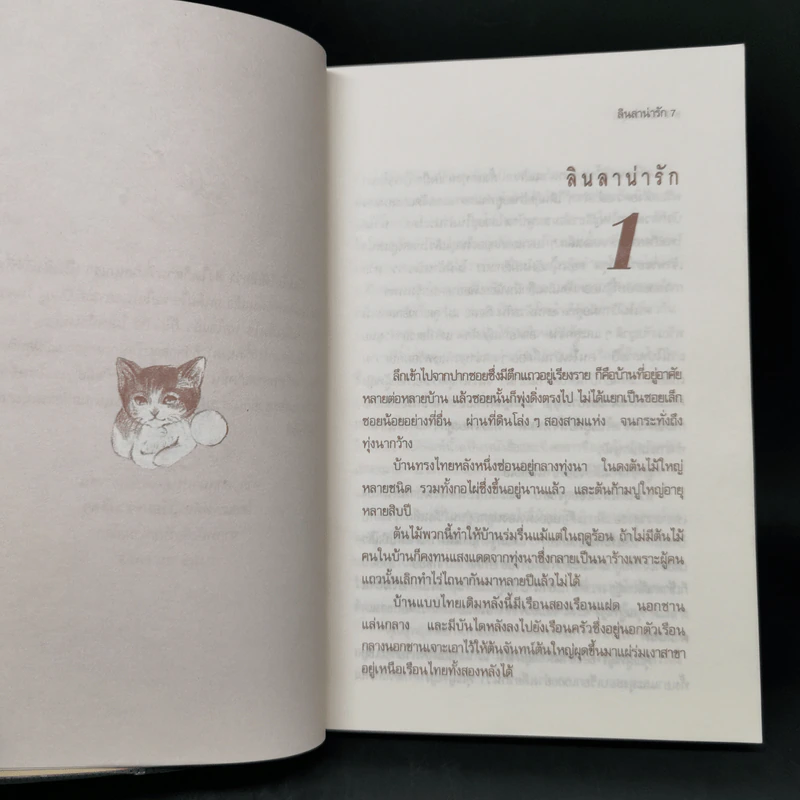 ลินลาน่ารัก 7
ลินลาน่ารัก
1
ลึกเข้าไปจากปากซอยซึ่งมีตึกแถวอยู่เรียงราย ก็คือบ้านที่อยู่อาศัย
หลายต่อหลายบ้าน แล้วซอยนั้นก็พุ่งดิ่งตรงไป ไม่ได้แยกเป็นซอยเล็ก
ซอยน้อยอย่างที่อื่น ผ่านที่ดินโล่ง ๆ สองสามแห่ง จนกระทั่งถึง
ทุ่งนากว้าง
บ้านทรงไทยหลังหนึ่งซ่อนอยู่กลางทุ่งนา ในดงต้นไม้ใหญ่
หลายชนิด รวมทั้งกอไผ่ซึ่งขึ้นอยู่นานแล้ว และต้นก้ามปูใหญ่อายุ
หลายสิบปี
ต้นไม้พวกนี้ทำให้บ้านร่มรื่นแม้แต่ในฤดูร้อน ถ้าไม่มีต้นไม้
คนในบ้านก็คงทนแสงแดดจากทุ่งนาซึ่งกลายเป็นนาร้างเพราะผู้คน
แถวนั้นเลิกทำไร่ไถนากันมาหลายปีแล้วไม่ได้
บ้านแบบไทยเดิมหลังนี้มีเรือนสองเรือนแฝด นอกชาน
แล่นกลาง และมีบันไดหลังลงไปยังเรือนครัวซึ่งอยู่นอกตัวเรือน
กลางนอกชานเจาะเอาไว้ให้ต้นจันทน์ต้นใหญ่ผุดขึ้นมาแผ่ร่มเงาสาขา
อยู่เหนือเรือนไทยทั้งสองหลังได้